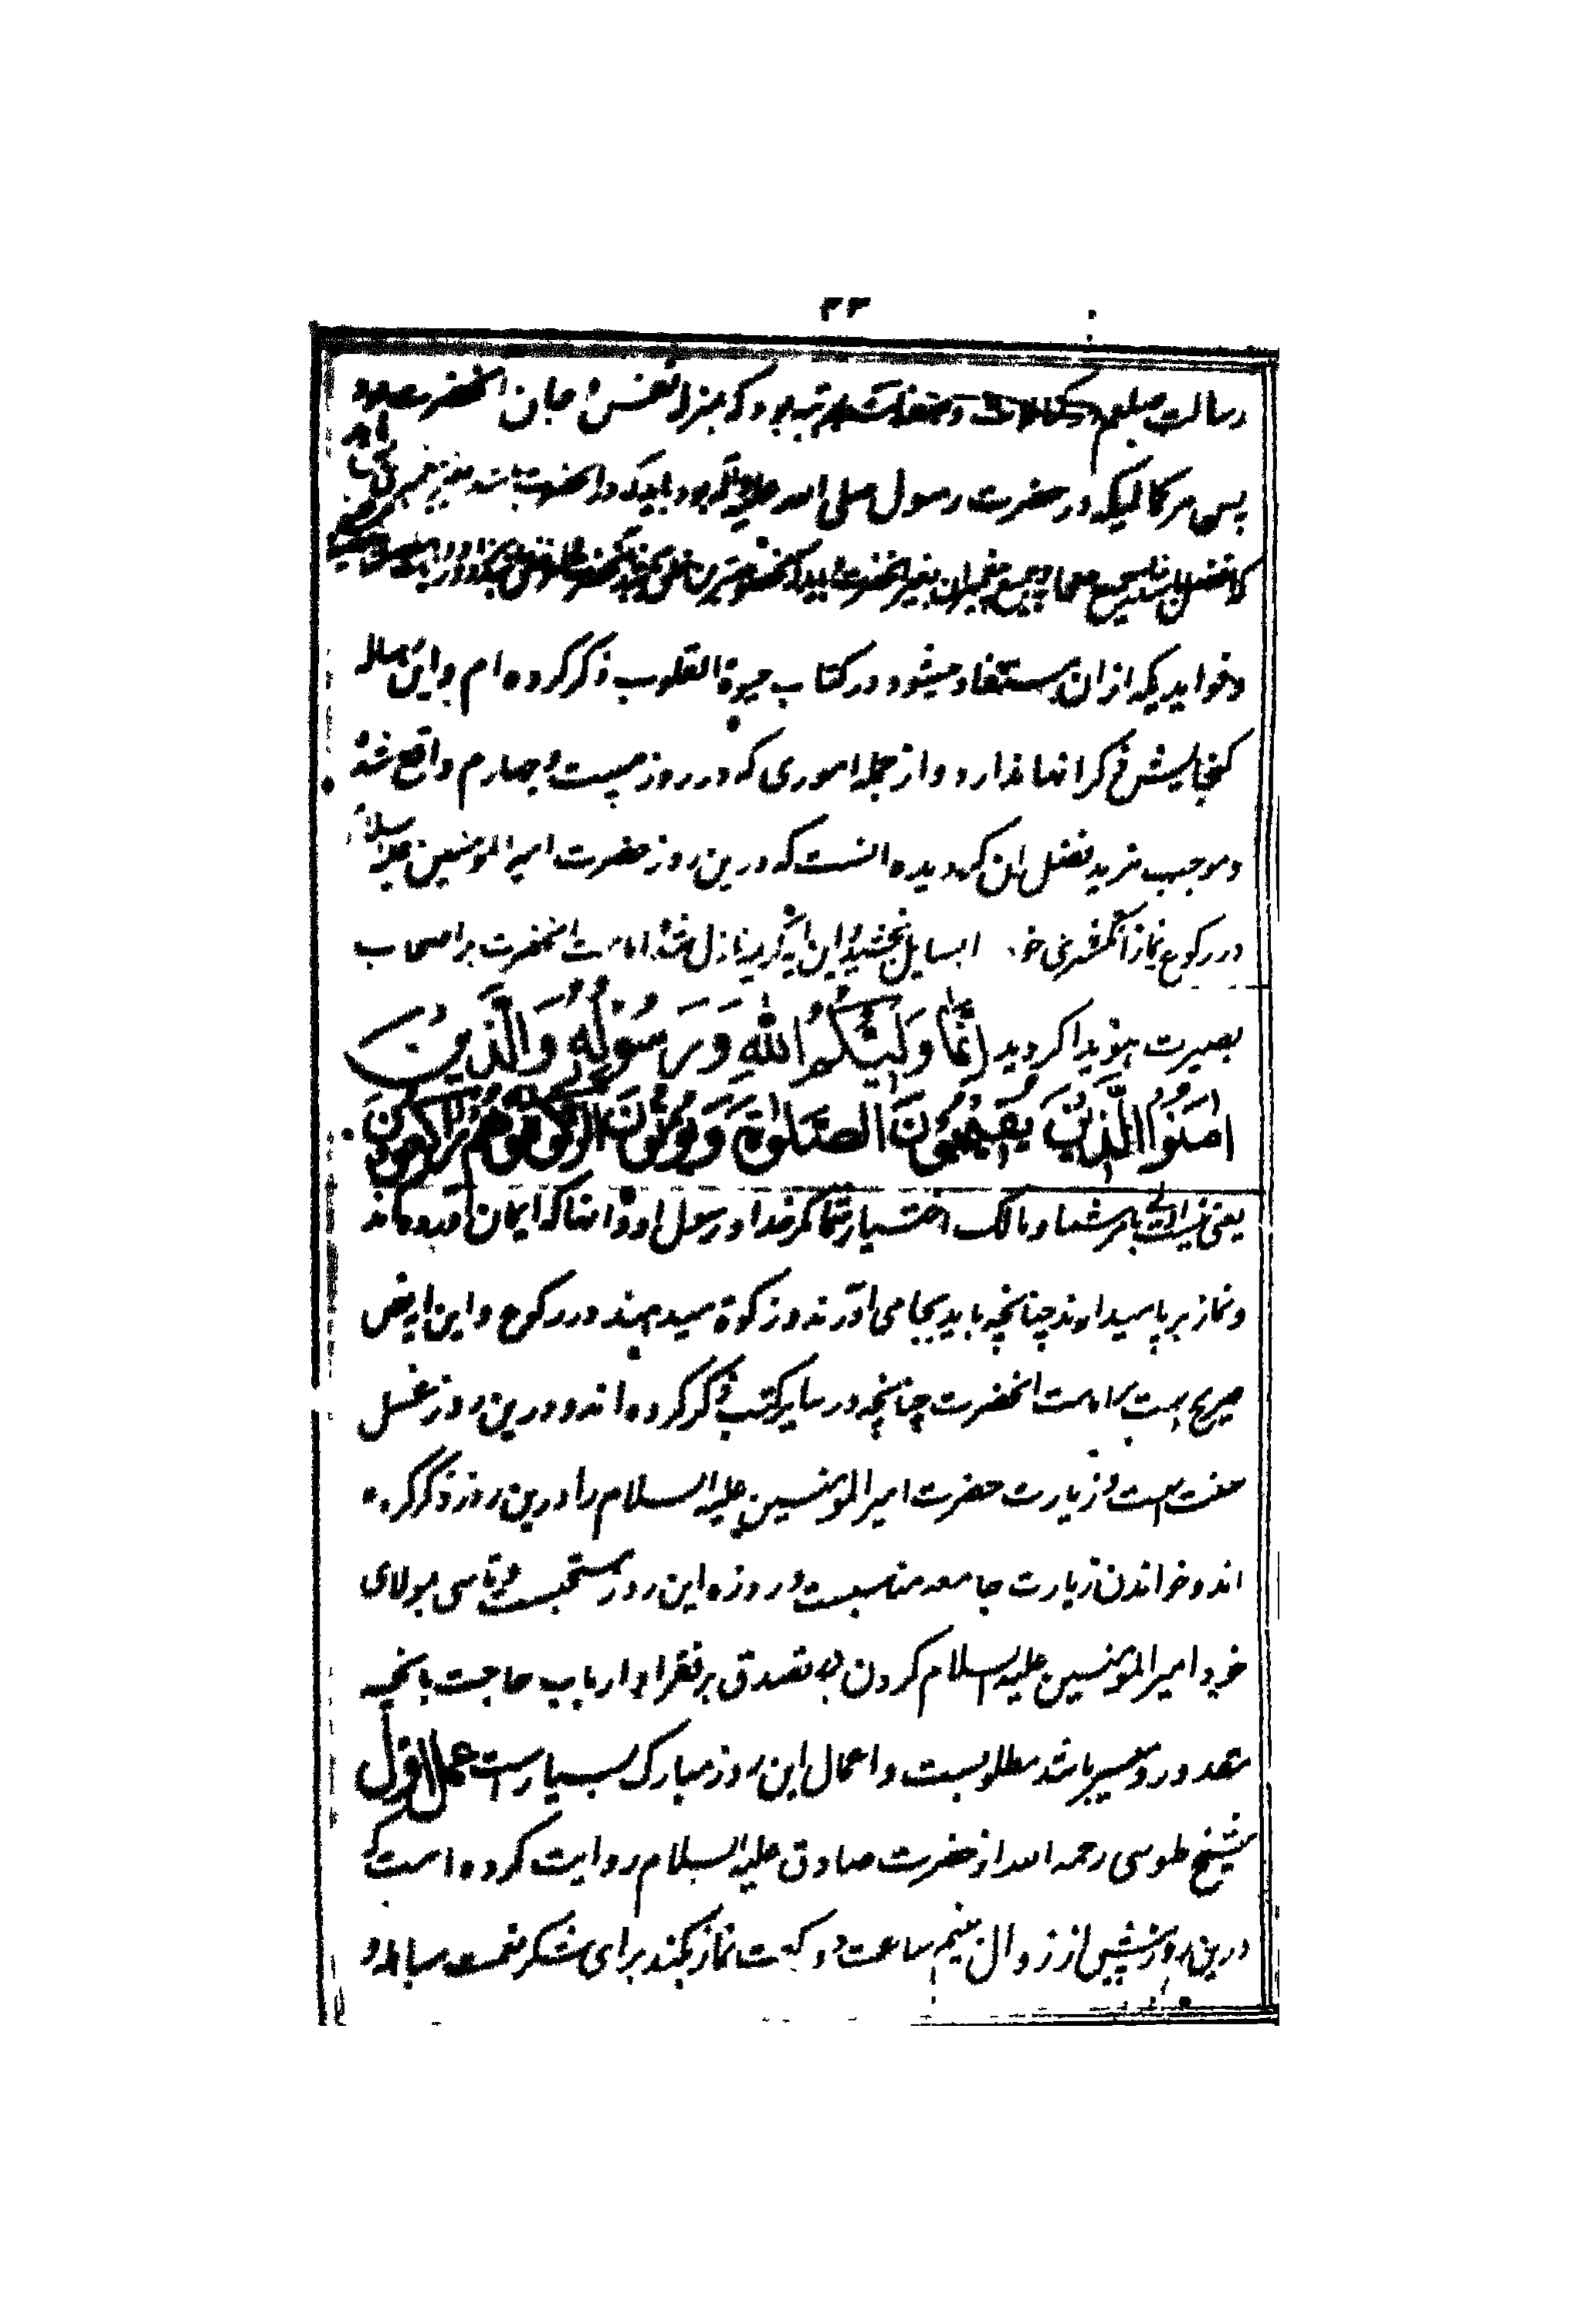 ۳۳
رسالت صلعم در کمالات و صفات بمرتبه بود که بمنزله نفس و جان انحضرت بود
پس هر کمالیکه در حضرت رسول صلی الله علیه و اله بود باید که در انحضرت باشد بغیر پیغمبری
که افضل باشد از جمیع صحابه و جمیع پیغمبران بغیر
و فوایدیکه از ان مستفاد میشود در کتاب حیوة القلوب ذکر کرده ام و این رساله
گنجایش ذکر انها ندارد و از جمله اموری که در روز بیست و چهارم واقع شده
و موجب مزید فضل ان گردیده انست که درین روز حضرت امیر المومنین علیه السلام
در رکوع نماز انگشتری خود بسایل بخشید و این ایه کریمه نازل شد و امامت انحضرت بر اصحاب
بصیرت هویدا گردید اِنَّمَا وَلِیُّکُمُ اللهُ وَرَسُوْلُهُ وَالَّذِیْنَ
اٰمَنُوا الَّذِیْنَ یُقِیْمُوْنَ الصَّلٰوةَ وَیُؤْتُوْنَ الزَّکٰوةَ وَهُمْ رَاکِعُوْنَ
یعنی نیست اولی بامر شما و مالک اختیار شما مگر خدا و رسول او و انها که ایمان آورده اند
و نماز بر پا میدارند چنانچه باید بجا می اورند و زکوة میدهند در رکوع و این ایه نص
صریح است بر امامت انحضرت چنانچه در سایر کتب ذکر کرده اند و درین روز غسل
سنت است و زیارت حضرت امیر المومنین علیه السلام را درین روز ذکر کرده
اند و خواندن زیارت جامعه مناسبست و روزه این روز مستحبست و تاسی بمولای
خود امیر المومنین علیه السلام کردن به تصدق بر فقرا و ارباب حاجت بانچه
مقدور و میسر باشد مطلوبست و اعمال این روز مبارک بسیار است عمل اول
شیخ طوسی رحمه الله از حضرت صادق علیه السلام روایت کرده است که
درین روز پیش از زوال بنیم ساعت دو رکعت نماز بکند برای شکر نعمت مباهله و